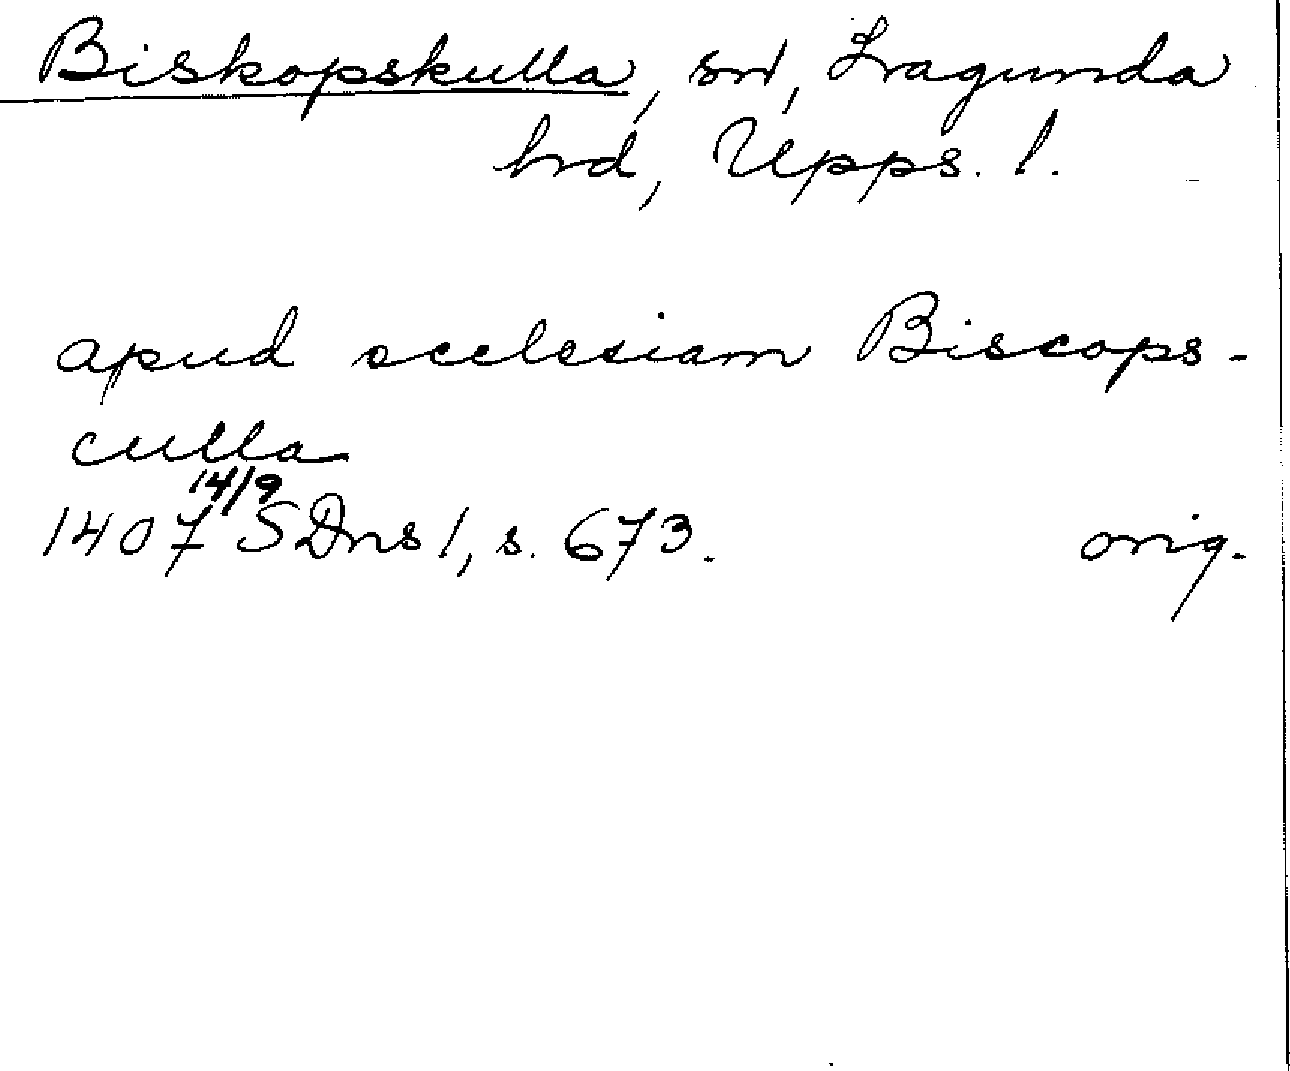 Biskopskulla, sn, Lagunda
hrd, Upps. l.
apud ecclesiam Biscops-
culla
14/9
1407 SDns 1, s. 673. orig.